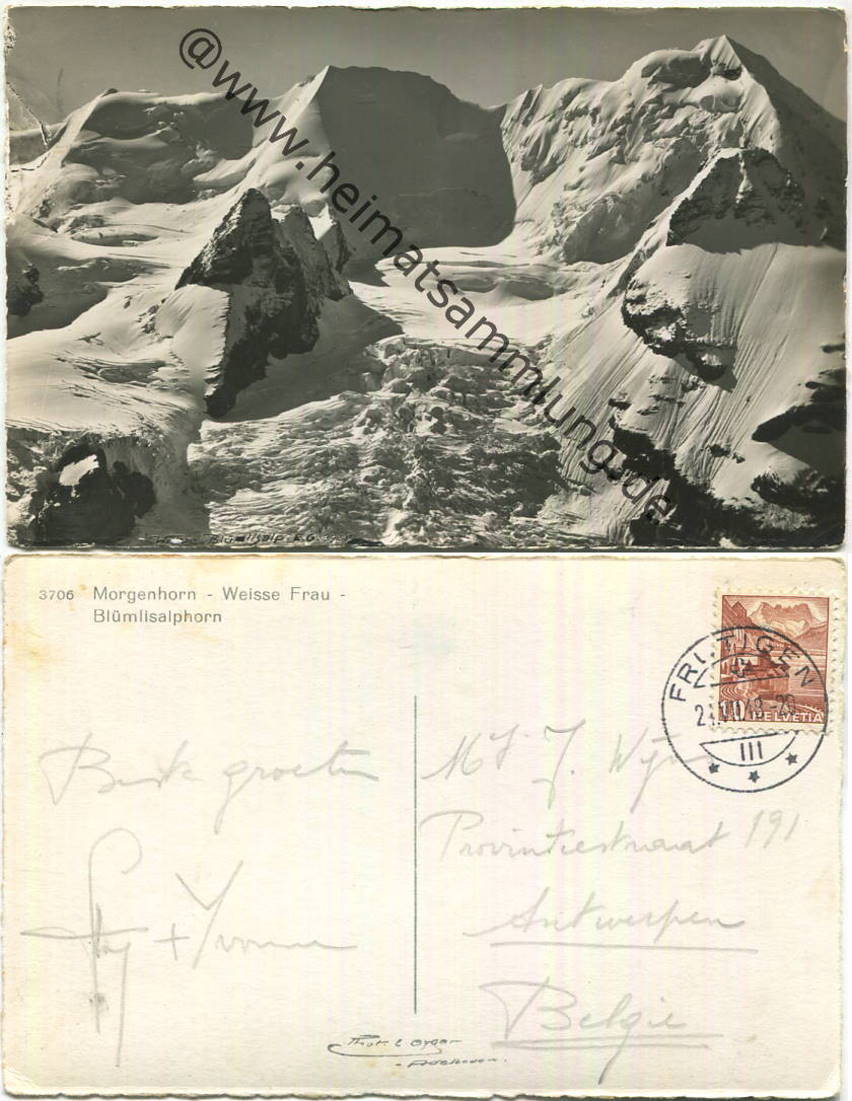 @www.heimatsammlung.de
3706 Morgenhorn - Weisse Frau -
Blümlisalphorn
FRUTIGEN
III
10 HELVETIA
groeten
+ Yvonne
J.
Provintiestraat 191
Antwerpen
België
Phot. E. Gyger
- Adelboden.